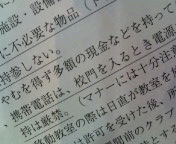 施設・設備
に不必要な物品（
持参しない。
やむを得ず多額の現金などを持って
・携帯電話は、校門を入るとき電源
持は厳禁。（マナーには十分注意
移動教室の際は日直が教室を
は許可を受けた後、所
間前のクラブ